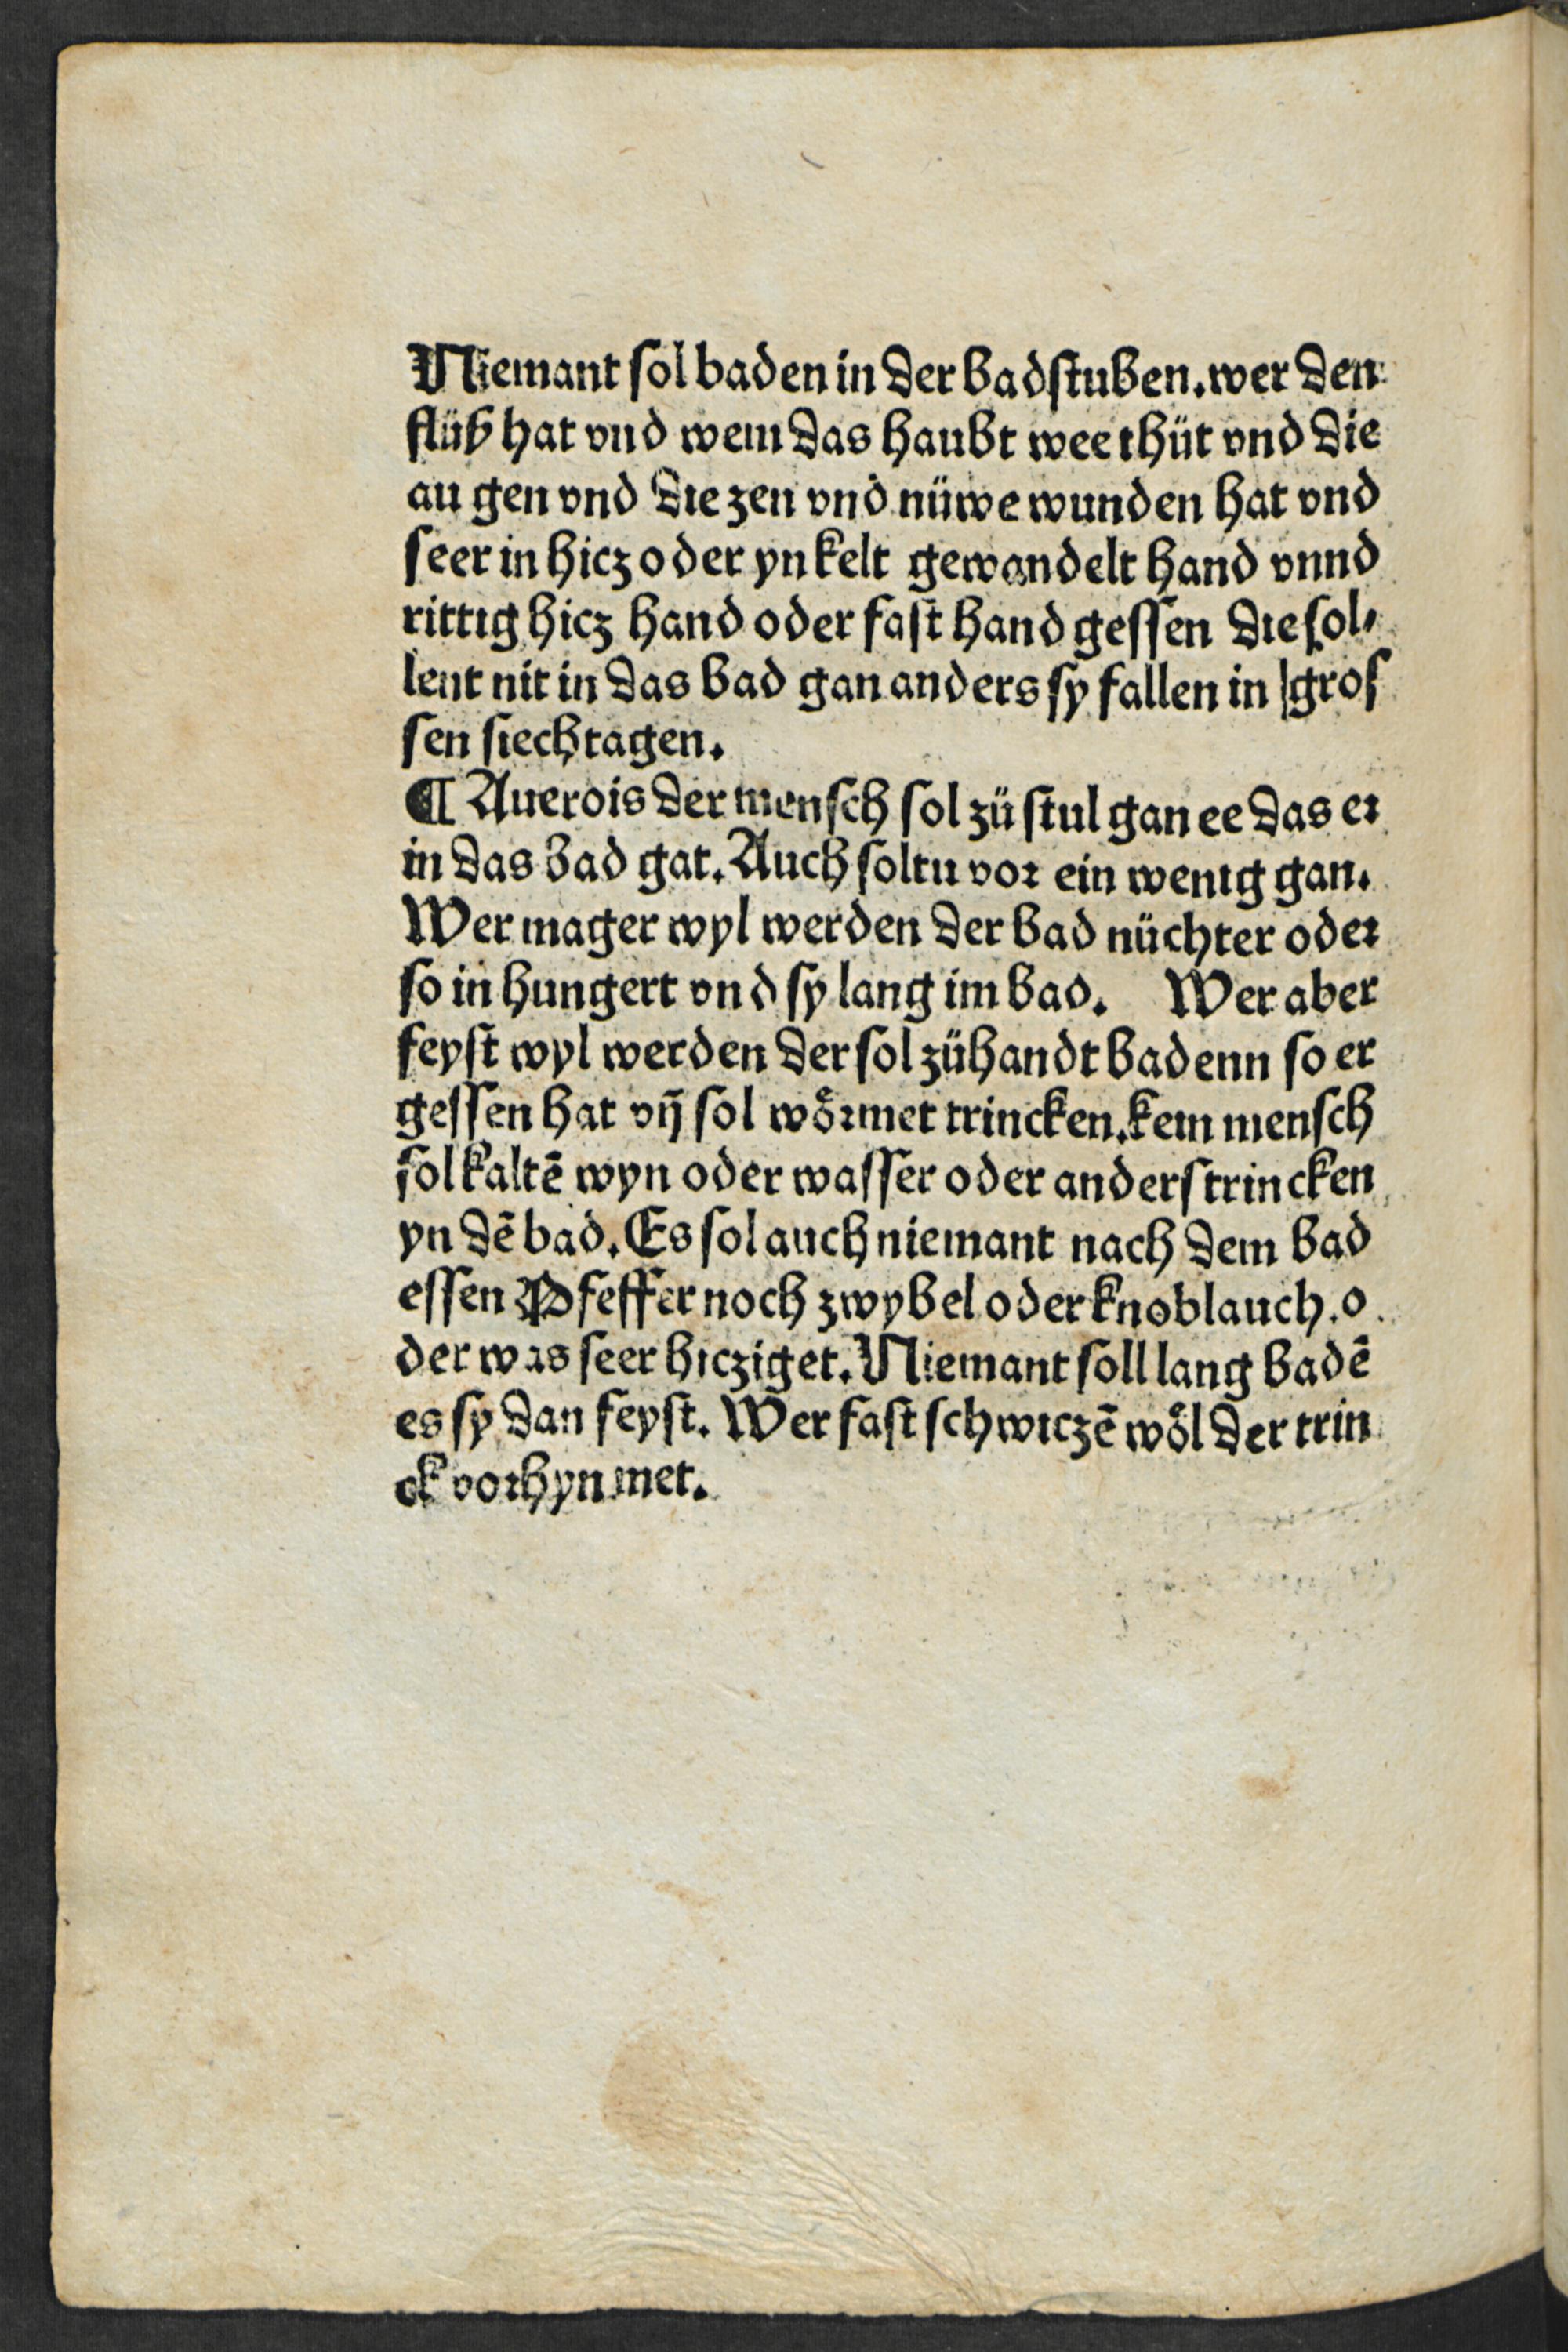 Niemant sol baden in der badstuben. wer den
flüß hat vnd wem das haubt wee thüt vnd die
au gen vnd die zen vnd nüwe wunden hat vnd
seer in hicz oder yn kelt gewandelt hand vnnd
rittig hicz hand oder fast hand gessen die sol⸗
lent nit in das bad gan anders sy fallen in gros
sen siechtagen.
¶ Auerois der mensch sol zü stul gan ee das er
in das bad gat. Auch soltu vor ein wenig gan.
Wer mager wyl werden der bad nüchter oder
so in hungert vnd sy lang im bad. Wer aber
feyst wyl werden der sol zühandt badenn so er
gessen hat vñ sol wörmet trincken. kein mensch
sol kaltē wyn oder wasser oder anders trincken
yn dē bad. Es sol auch niemant nach dem bad
essen Pfeffer noch zwybel oder knoblauch. o
der was seer hicziget. Niemant soll lang badē
es sy dan feyst. Wer fast schwiczē wöl der trin
ck vorhyn met.